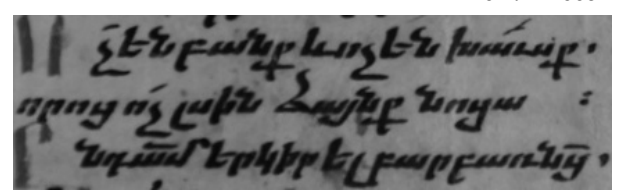 Ոչ են բանք և ոչ են խաւսք.
որոց ոչ լսին ձայնք նոցա :
Ընդ ամ երկիր ել բարբառ նց.